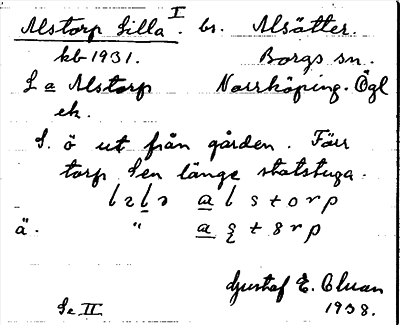 Alstorp Lilla I. by. Alsätter.
kb 1931. Borgs sn.
L a Alstorp Norrköping. Ögl
ek.
S. ö ut från gården. Förr
torp. Sen länge statstuga.
a l s t o r p
ä. "
Gustaf E.
Se II 1938.